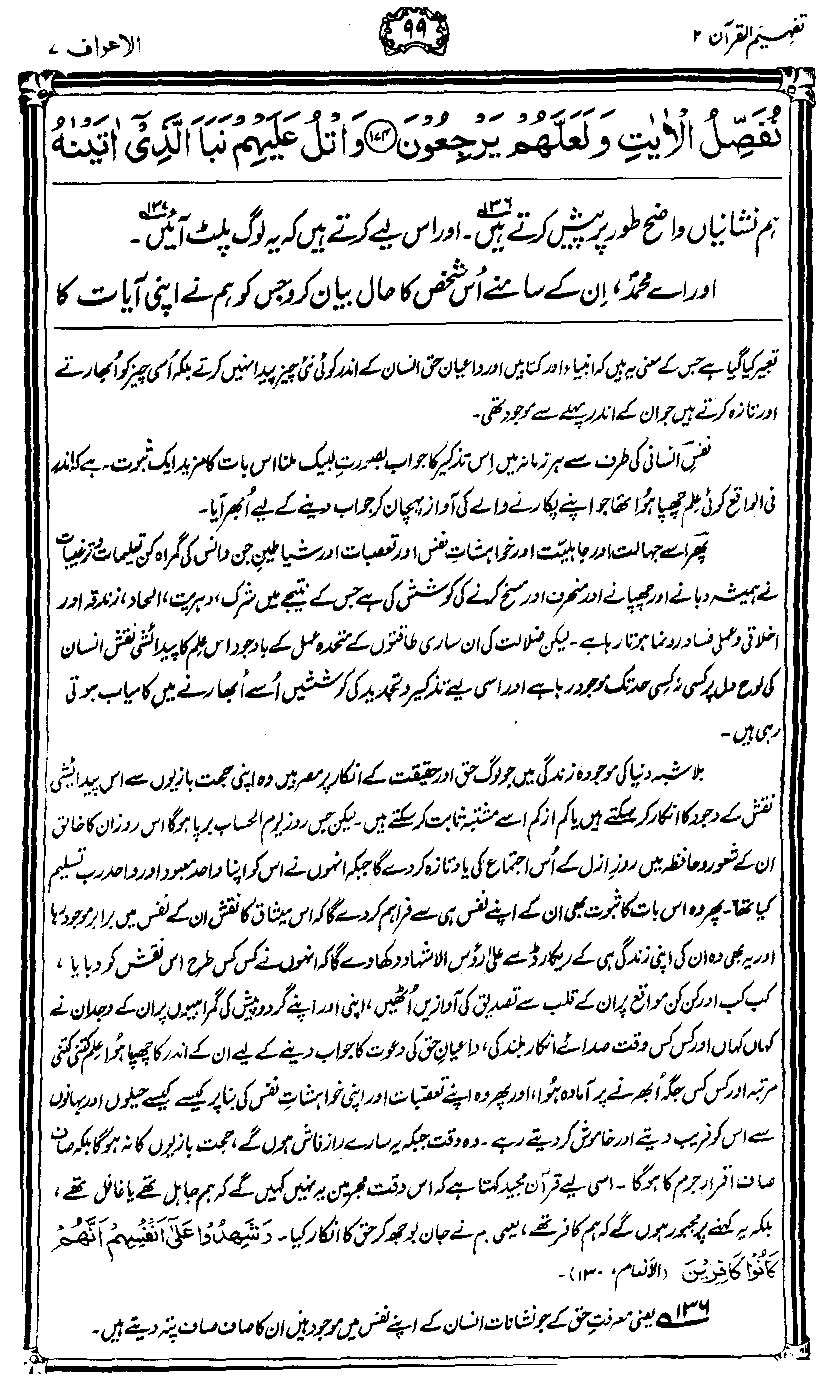 تفہیم القرآن ۲
۹۹
الاعراف ۷
نُفَصِّلُ الْاٰيٰتِ وَلَعَلَّهُمْ يَرْجِعُوْنَ ﴿۱۷۴﴾ وَاتْلُ عَلَيْهِمْ نَبَاَ الَّذِيْٓ اٰتَيْنٰهُ
ہم نشانیاں واضح طور پر پیش کرتے ہیں۱۳۶۔ اور اس لیے کرتے ہیں کہ یہ لوگ پلٹ آئیں۱۳۷۔
اور اے محمدؐ، اِن کے سامنے اُس شخص کا حال بیان کرو جس کو ہم نے اپنی آیات کا
تعبیر کیا گیا ہے جس کے معنی یہ ہیں کہ انبیاء اور کتابیں اور داعیان حق انسان کے اندر کوئی نئی چیز پیدا نہیں کرتے بلکہ اُسی چیز کو اُبھارتے
اور تازہ کرتے ہیں جو ان کے اندر پہلے سے موجود تھی۔
نفسِ انسانی کی طرف سے ہر زمانہ میں اِس تذکیر کا جواب بصورتِ لبیک ملنا اس بات کا مزید ایک ثبوت ہے کہ اندر
فی الواقع کوئی علم چھپا ہُوا تھا جو اپنے پکارنے والے کی آواز پہچان کر جواب دینے کے لیے اُبھر آیا۔
پھر اسے جہالت اور جاہلیت اور خواہشاتِ نفس اور تعصبات اور شیاطینِ جن و انس کی گمراہ کن تعلیمات و ترغیبات
نے ہمیشہ دبانے اور چھپانے اور منحرف اور مسخ کرنے کی کوشش کی ہے جس کے نتیجے میں شرک، دہریت، الحاد، زندقہ اور
اخلاقی و عملی فساد رونما ہوتا رہا ہے۔ لیکن ضلالت کی ان ساری طاقتوں کے متحدہ عمل کے باوجود اس علم کا پیدائشی نقش انسان
کی لوحِ دل پر کسی نہ کسی حد تک موجود رہا ہے اور اسی لیے تذکیر و تجدید کی کوششیں اُسے اُبھارنے میں کامیاب ہوتی
رہی ہیں۔
بلاشبہ دنیا کی موجودہ زندگی میں جو لوگ حق اور حقیقت کے انکار پر مصر ہیں وہ اپنی حجت بازیوں سے اس پیدائشی
نقش کے وجود کا انکار کر سکتے ہیں یا کم از کم اسے مشتبہ ثابت کر سکتے ہیں۔ لیکن جس روز یوم الحساب برپا ہوگا اس روز ان کا خالق
ان کے شعور و حافظہ میں روزِ ازل کے اُس اجتماع کی یاد تازہ کر دے گا جبکہ انہوں نے اس کو اپنا واحد معبود اور واحد رب تسلیم
کیا تھا۔ پھر وہ اس بات کا ثبوت بھی ان کے اپنے نفس ہی سے فراہم کر دے گا کہ اس میثاق کا نقش ان کے نفس میں برابر موجود رہا
اور یہ بھی وہ ان کی اپنی زندگی ہی کے ریکارڈ سے علیٰ رؤس الاشہاد دکھا دے گا کہ انہوں نے کس کس طرح اس نقش کو دبایا،
کب کب اور کن کن مواقع پر ان کے قلب سے تصدیق کی آوازیں اُٹھیں، اپنی اور اپنے گرد و پیش کی گمراہیوں پر ان کے وجدان نے
کہاں کہاں اور کس کس وقت صدائے انکار بلند کی، داعیانِ حق کی دعوت کا جواب دینے کے لیے ان کے اندر کا چھپا ہُوا علم کتنی کتنی
مرتبہ اور کس کس جگہ اُبھرنے پر آمادہ ہُوا، اور پھر وہ اپنے تعصبات اور اپنی خواہشاتِ نفس کی بنا پر کیسے کیسے حیلوں اور بہانوں
سے اس کو فریب دیتے اور خاموش کر دیتے رہے۔ وہ وقت جبکہ یہ سارے راز فاش ہوں گے، حجت بازیوں کا نہ ہوگا بلکہ صاف
صاف اقرارِ جرم کا ہوگا۔ اسی لیے قرآن مجید کہتا ہے کہ اس وقت مجرمین یہ نہیں کہیں گے کہ ہم جاہل تھے یا غافل تھے،
بلکہ یہ کہنے پر مجبور ہوں گے کہ ہم کافر تھے، یعنی ہم نے جان بوجھ کر حق کا انکار کیا۔ وَشَهِدُوْا عَلٰٓى اَنْفُسِهِمْ اَنَّهُمْ
كَانُوْا كَافِرِيْنَ (الانعام، ۱۳۰)۔
۱۳۶ یعنی معرفتِ حق کے جو نشانات انسان کے اپنے نفس میں موجود ہیں ان کا صاف صاف پتہ دیتے ہیں۔